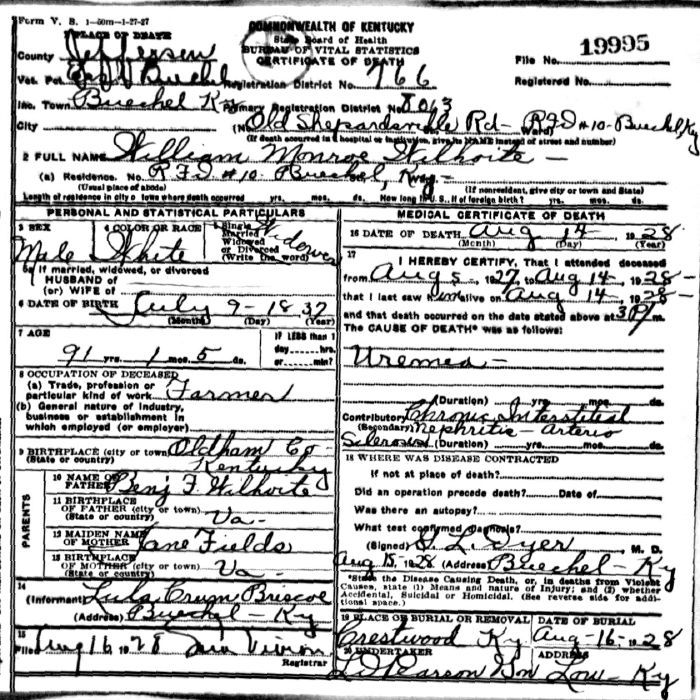 Form V. S. 1-50m-1-27-27
COMMONWEALTH OF KENTUCKY
State Board of Health
BUREAU OF VITAL STATISTICS
CERTIFICATE OF DEATH
File No. 19995
Registered No.
PLACE OF DEATH
County Jefferson
Vot. Pct. Buechel Registration District No. 766
Inc. Town Buechel Ky Primary Registration District No. 8063
City (No. Old Shepardsville Rd- RFD #10- Buechel Ky Ward)
(If death occurred in a hospital or institution, give its NAME instead of street and number)
2 FULL NAME William Monroe Wilhoite -
(a) Residence. No. RFD #10- Buechel, Ky -
(Usual place of abode) (If nonresident, give city or town and State)
Length of residence in city or town where death occurred yrs. mos. ds. How long in U. S., if of foreign birth? yrs. mos. ds.
PERSONAL AND STATISTICAL PARTICULARS
3 SEX Male
4 COLOR OR RACE White
5 Single
Married
Widowed
or Divorced
(Write the word) Widower
5a If married, widowed, or divorced
HUSBAND of
(or) WIFE of
6 DATE OF BIRTH July 9- 1837
(Month) (Day) (Year)
7 AGE
91 yrs. 1 mos. 5 ds.
IF LESS than 1
day hrs.
or min?
8 OCCUPATION OF DECEASED
(a) Trade, profession or
particular kind of work Farmer
(b) General nature of industry,
business or establishment in
which employed (or employer)
9 BIRTHPLACE (city or town) Oldham Co-
(State or country) Kentucky
PARENTS
10 NAME OF
FATHER Benj F. Wilhoite
11 BIRTHPLACE
OF FATHER (city or town)
(State or country) Va-
12 MAIDEN NAME
OF MOTHER Jane Fields
13 BIRTHPLACE
OF MOTHER (city or town)
(State or country) Va-
14
(Informant) Lula Crum Briscoe
(Address) Buechel Ky
15
Filed Aug 16 1928
Registrar
MEDICAL CERTIFICATE OF DEATH
16 DATE OF DEATH Aug 14 1928
(Month) (Day) (Year)
17
I HEREBY CERTIFY, That I attended deceased
from Aug 5, 1927 to Aug 14, 1928-
that I last saw him alive on Aug 14, 1928-
and that death occurred on the date stated above at 3 P. m.
The CAUSE OF DEATH* was as follows:
Uremea -
(Duration) yrs. mos. ds.
Contributory Chronic Interstitial
(Secondary) Nephritis - Arterio
Sclerosis (Duration) yrs. mos. ds.
18 WHERE WAS DISEASE CONTRACTED
If not at place of death?
Did an operation precede death? Date of
Was there an autopsy?
What test confirmed diagnosis?
(Signed) S. L. Dyer M. D.
Aug 15, 1928 (Address) Buechel- Ky
*State the Disease Causing Death, or, in deaths from Violent
Causes, state (1) Means and nature of Injury; and (2) whether
Accidental, Suicidal or Homicidal. (See reverse side for addi-
tional space.)
19 PLACE OF BURIAL OR REMOVAL DATE OF BURIAL
Crestwood Ky Aug-16- 1928
20 UNDERTAKER ADDRESS
L D Pearson Son Lou- Ky